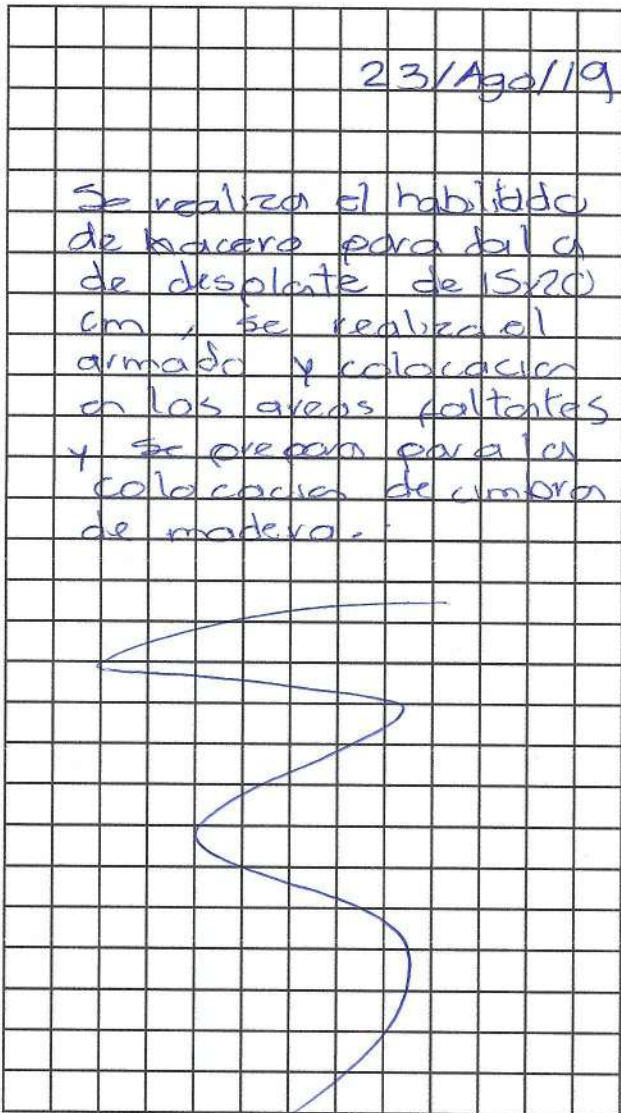 23/Ago/19
Se realiza el habilitado
de hacero para dala
de desplante de 15x20
cm, se realiza el
armado y colocacion
en las areas faltantes
y se prepara para la
colocacion de cimbra
de madera.